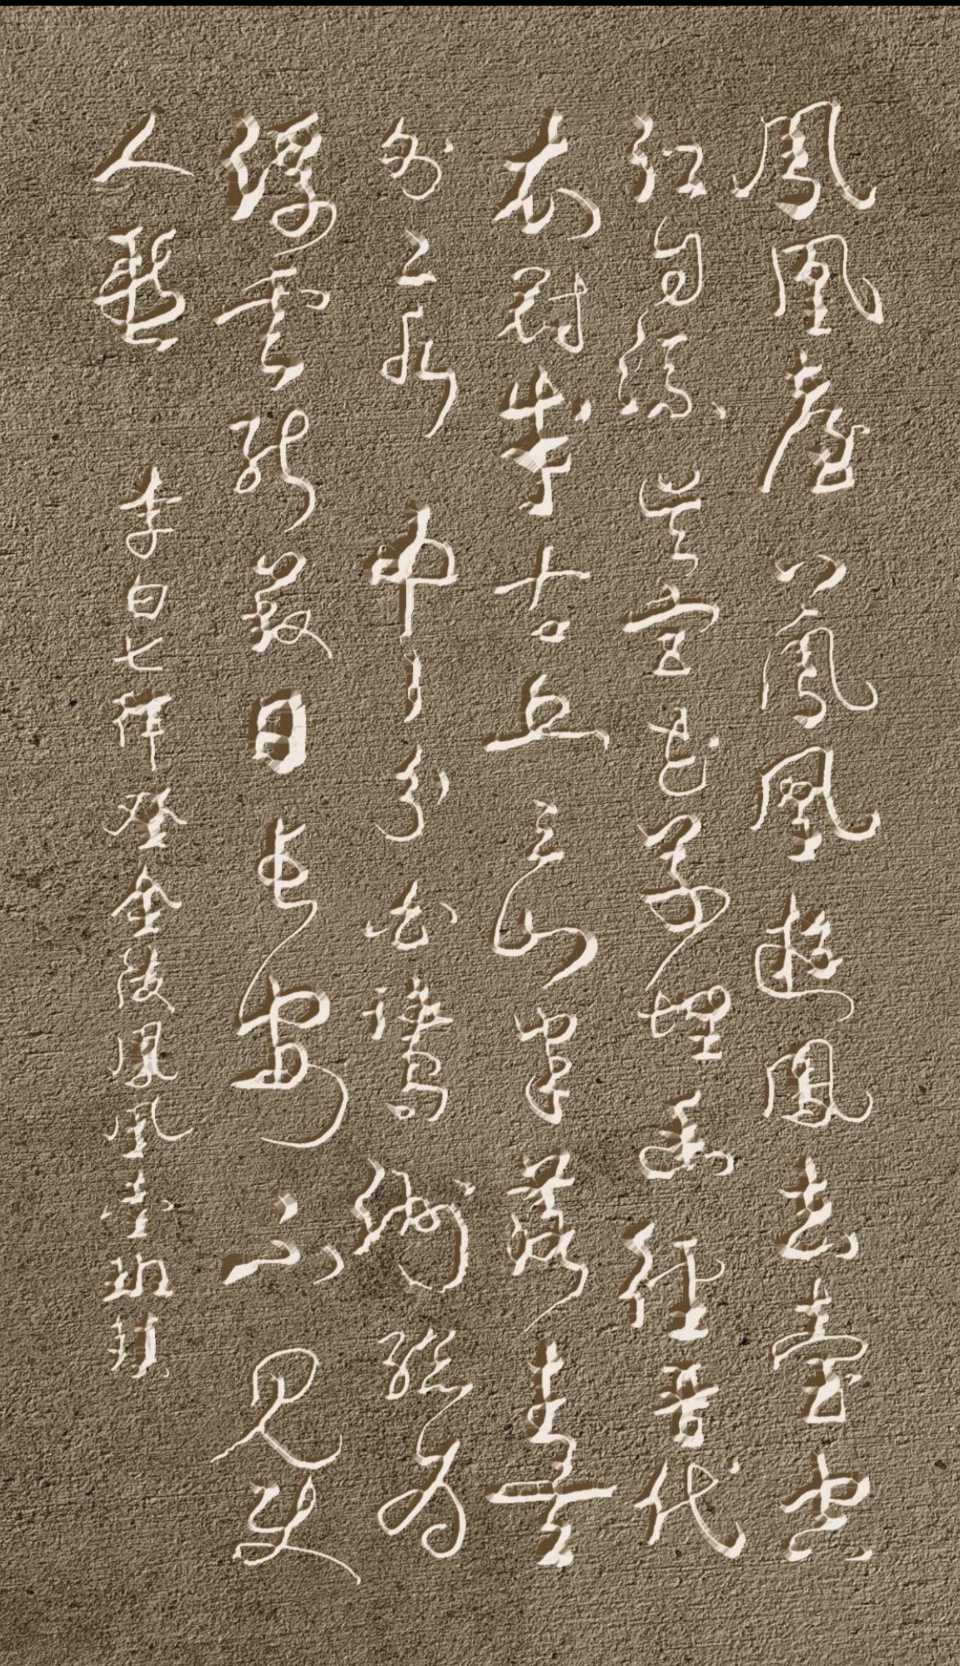 鳳凰臺上鳳凰遊鳳去臺空
江自流吳宮花草埋幽徑晉代
衣冠成古丘三山半落青天
外二水中分白鷺洲總為
浮雲能蔽日長安不見使
人愁 李白七律登金陵鳳凰臺